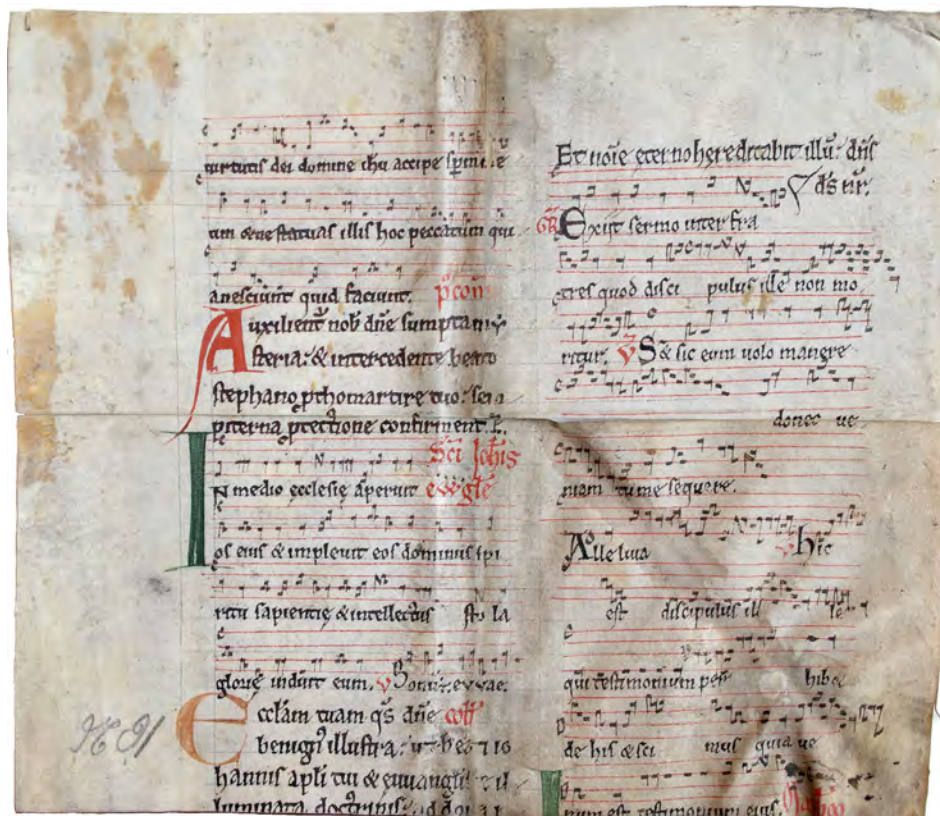 uirtutis dei domine ihu accipe spm me
um & ne statuas illis hoc peccatum qui
a nesciunt quid faciunt. p̄com
Auxilient̄ nob dn̄e sumpta mȳ
steria: & intercedente beato
stephano p̱thomartire tuo: sem
piterna p̱tectione confirment. P.
Sc̄i Joh̄is
IN medio ęcclesię aperuit ewgl̄e
os eius & impleuit eos dominus spi
ritu sapientię & intellectus sto la
glorię induit eum. V Bonū. evvae.
Eccl̄am tuam q̄s dn̄e coll̄
benign' illustra: ut beati io
hannis apl̄i tui & euuangl̄i
luminata doctrinis: ad do
Et noīe ęterno hereditabit illū: dn̄s
d̄s nr̄.
GR̄ Exiit sermo inter fra
tres quod disci pulus ille non mo
ritur. V S& sic eum uolo manere
donec ue
niam tu me sequere.
Alleluia V hic
est discipulus ill le
qui testimonium per hib&
de his & sci mus quia ue
rum est testimonium eius.
H 91